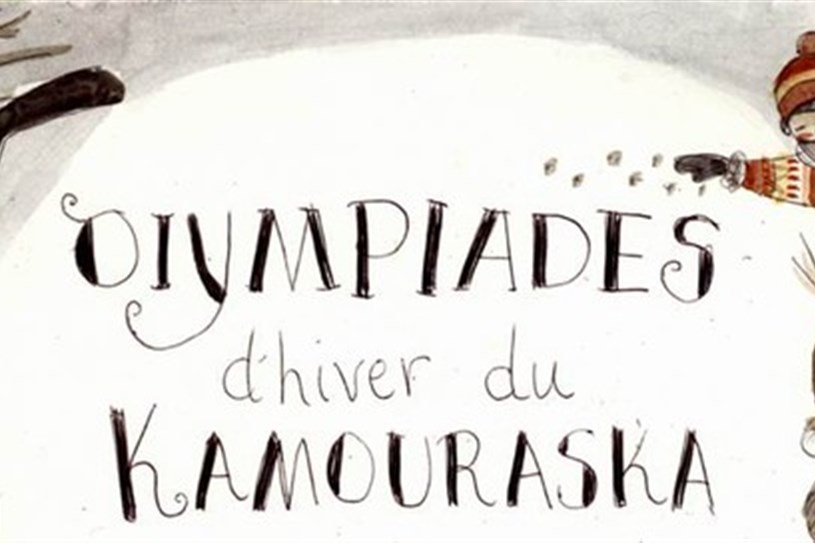 OlyMPIADES
d'hiver du
KAMOURASKA